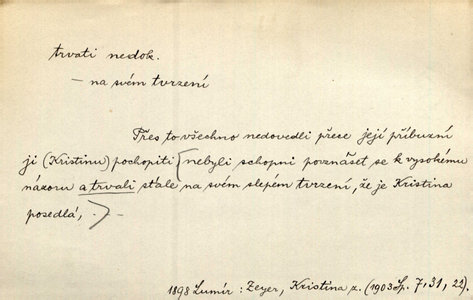 trvati nedok.
— na svém tvrzení
Přes to všechno nedovedli přece její příbuzní
ji (Kristinu) pochopiti (nebyli schopni povznášet se k vysokému
názoru a trvali stále na svém slepém tvrzení, že je Kristina
posedlá, .)—
1898 Lumír : Zeyer, Kristina z. (1903 Sp. 7, 31, 22).